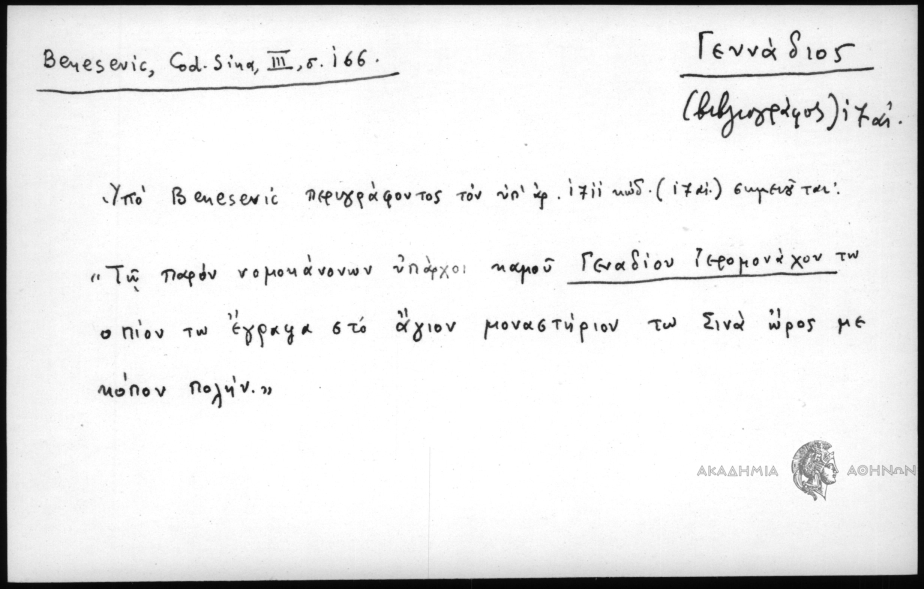 Benesevic, Cod. Sina, III, σ. 166.
Γεννάδιος
(βιβλιογράφος) 17 αἰ.
Ὑπό Benesevic περιγράφοντος τόν ὑπ' ἀρ. 1711 κώδ. (17 αἰ.) σημειοῦται:
"Τῶ παρόν νομοκάνονων ὑπάρχοι καμοῦ Γεναδίου Ἱερομονάχου τω
οπίον τω ἔγραψα στό ἅγιον μοναστήριον τω Σινὰ ὦρος με
κόπον πολήν."
ΑΚΑΔΗΜΙΑ ΑΘΗΝΩΝ